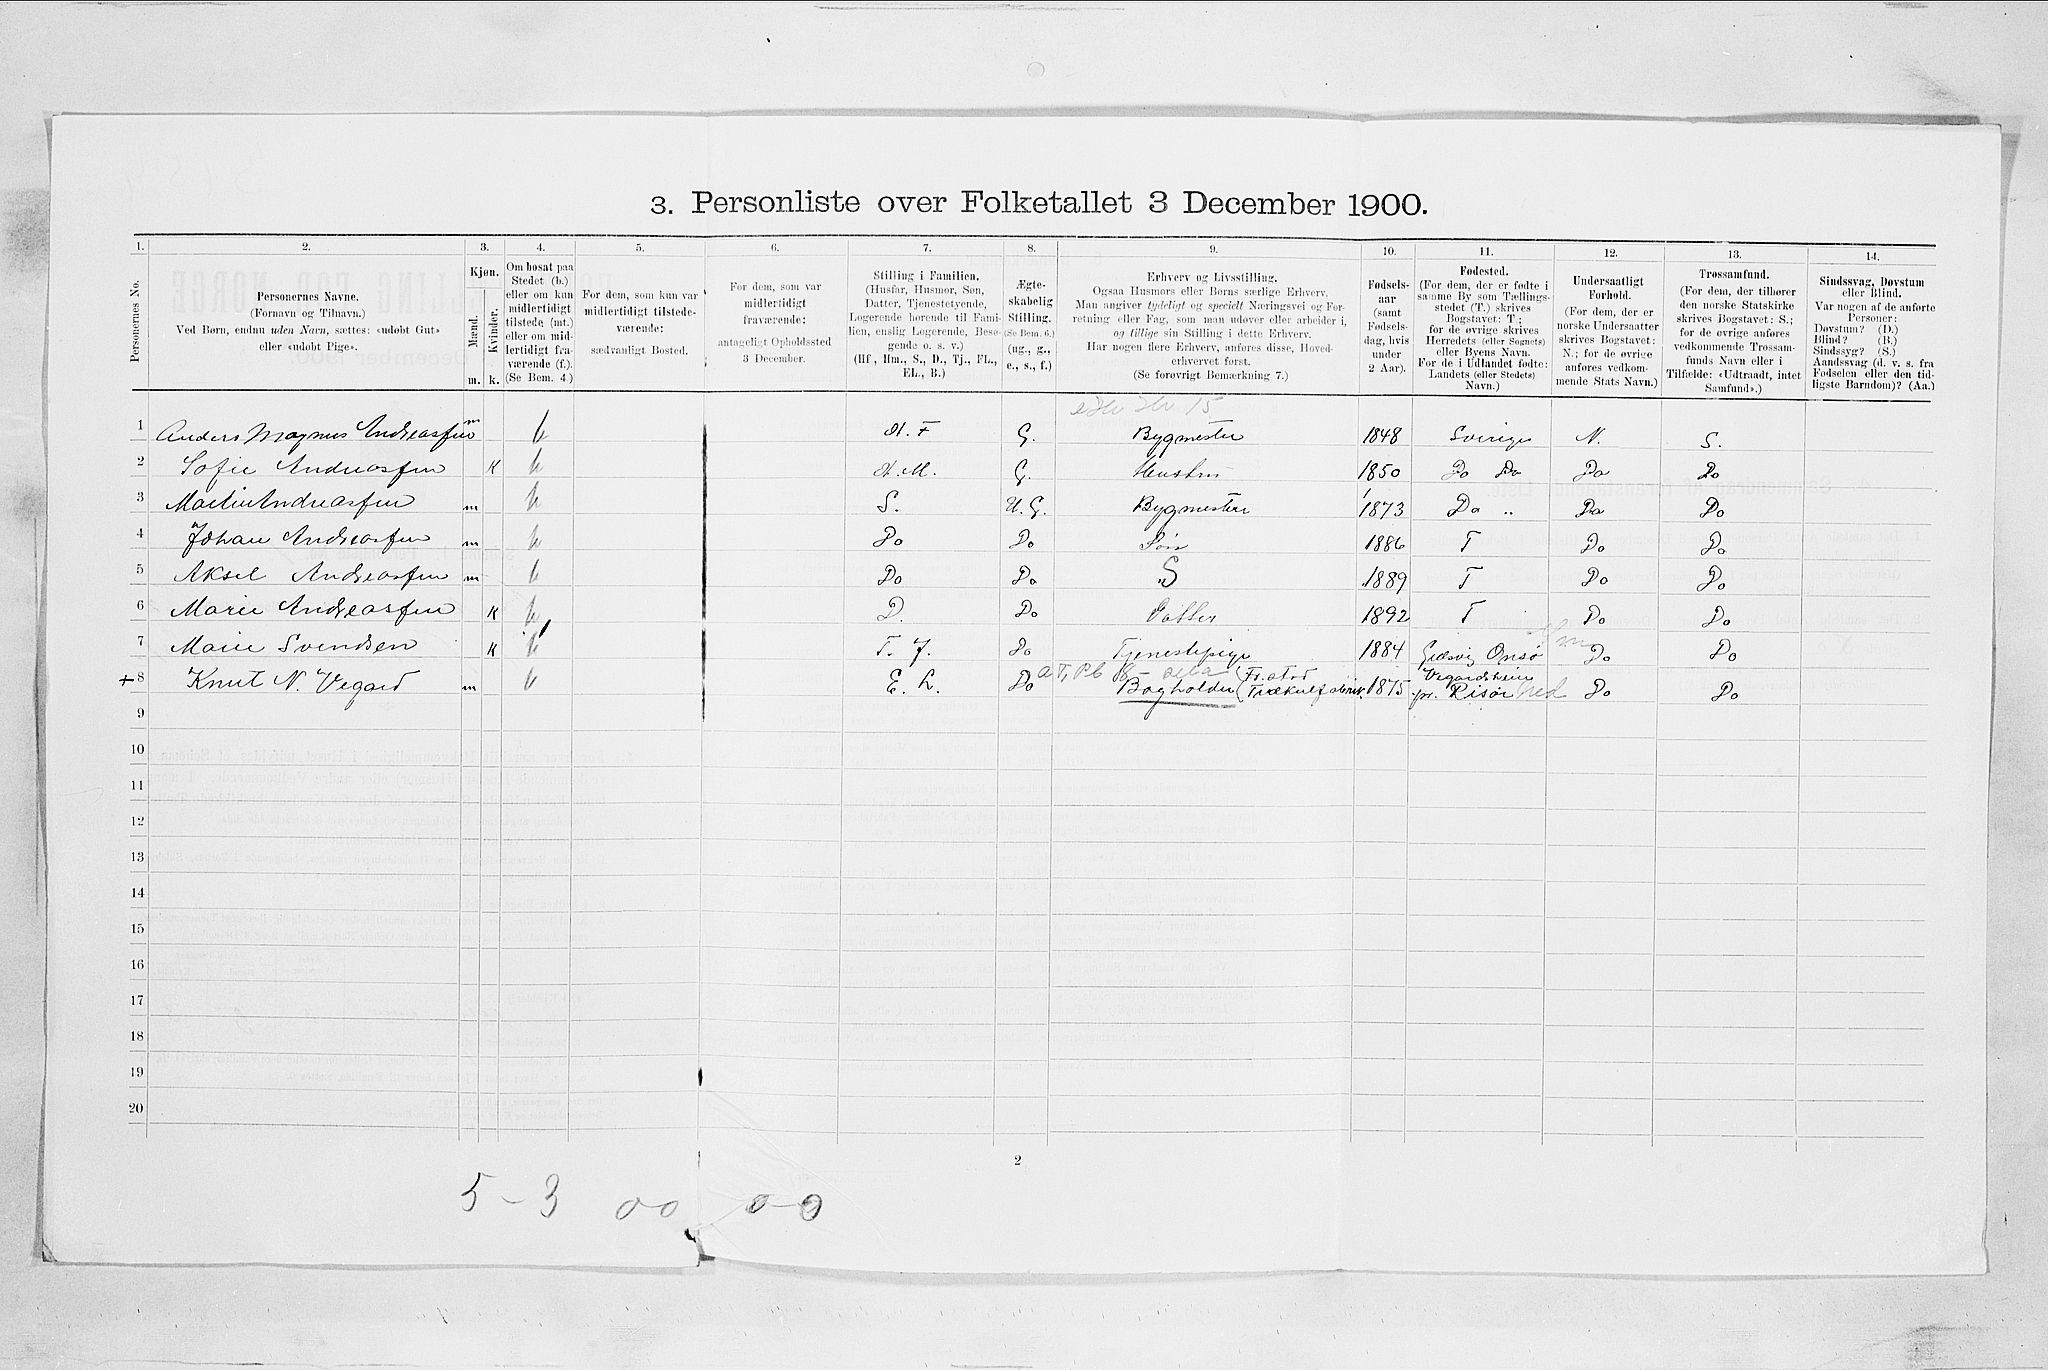 3. Personliste over Folketallet 3 December 1900.
1. 2. 3. 4. 5. 6. 7. 8. 9. 10. 11. 12. 13. 14.
Personernes No.
Personernes Navne.
(Fornavn og Tilnavn.)
Ved Børn, endnu uden Navn, sættes: «udøbt Gut»
eller «udøbt Pige».
Kjøn.
Mænd.
Kvinder.
m. k.
Om bosat paa
Stedet (b.)
eller om kun
midlertidigt
tilstede (mt.)
eller om mid-
lertidigt fra-
værende (f.).
(Se Bem. 4.)
For dem, som kun var
midlertidigt tilstede-
værende:
sædvanligt Bosted.
For dem, som var
midlertidigt
fraværende:
antageligt Opholdssted
3 December.
Stilling i Familien.
(Husfar, Husmor, Søn,
Datter, Tjenestetyende,
Logerende hørende til Fami-
lien, enslig Logerende, Besø-
gende o. s. v.)
(Hf, Hm., S., D., Tj., FL.,
EL., B.)
Ægte-
skabelig
Stilling.
(Se Bem. 6.)
(ug., g.,
e., s., f.)
Erhverv og Livsstilling.
Ogsaa Husmors eller Børns særlige Erhverv.
Man angiver tydeligt og specielt Næringsvei og For-
retning eller Fag, som man udøver eller arbeider i,
og tillige sin Stilling i dette Erhverv.
Har nogen flere Erhverv, anføres disse, Hoved-
erhvervet først.
(Se forøvrigt Bemærkning 7.)
Fødsels-
aar
(samt
Fødsels-
dag, hvis
under
2 Aar).
Fødested.
(For dem, der er fødte i
samme By som Tællings-
stedet (T.) skrives
Bogstavet: T.;
for de øvrige skrives
Herredets (eller Sognets)
eller Byens Navn.
For de i Udlandet fødte:
Landets (eller Stedets)
Navn.)
Undersaatligt
Forhold.
(For dem, der er
norske Undersaatter
skrives Bogstavet:
N.; for de øvrige
anføres vedkom-
mende Stats Navn.)
Trossamfund.
(For dem, der tilhører
den norske Statskirke
skrives Bogstavet: S.;
for de øvrige anføres
vedkommende Trossam-
funds Navn eller i
Tilfælde: «Udtraadt, intet
Samfund».)
Sindssvag, Døvstum
eller Blind.
Var nogen af de anførte
Personer:
Døvstum? (D.)
Blind? (B.)
Sindssyg? (S.)
Aandssvag (d. v. s. fra
Fødselen eller den tid-
ligste Barndom)? (Aa.)
15
1 Anders Magnus Andreassen m b H. F G. Bygmester 1848 Sverige N. S.
2 Sofie Andreassen K b H. M. G. Hustru 1850 Do Do Do Do
3 Martin Andreassen m b S. U. G. Bygmester 1873 Do „ Do Do
4 Johan Andreassen m b Do Do Søn 1886 T Do Do
5 Aksel Andreassen m b Do Do „S 1889 T Do Do
6 Marie Andreassen K b D. Do Datter 1892 T Do Do
7 Marie Svendsen K b T. J. Do Tjenestepige 1884 Onsø Do Do
+ 8 Knut N. Vegard m b E. L. Do Bogholder (Fr.stad 1875 Vegardsheien
pr. Risør Do Do
9
10
11
12
13
14
15
16
17
18
19
20
2
5 - 3 00 0-0